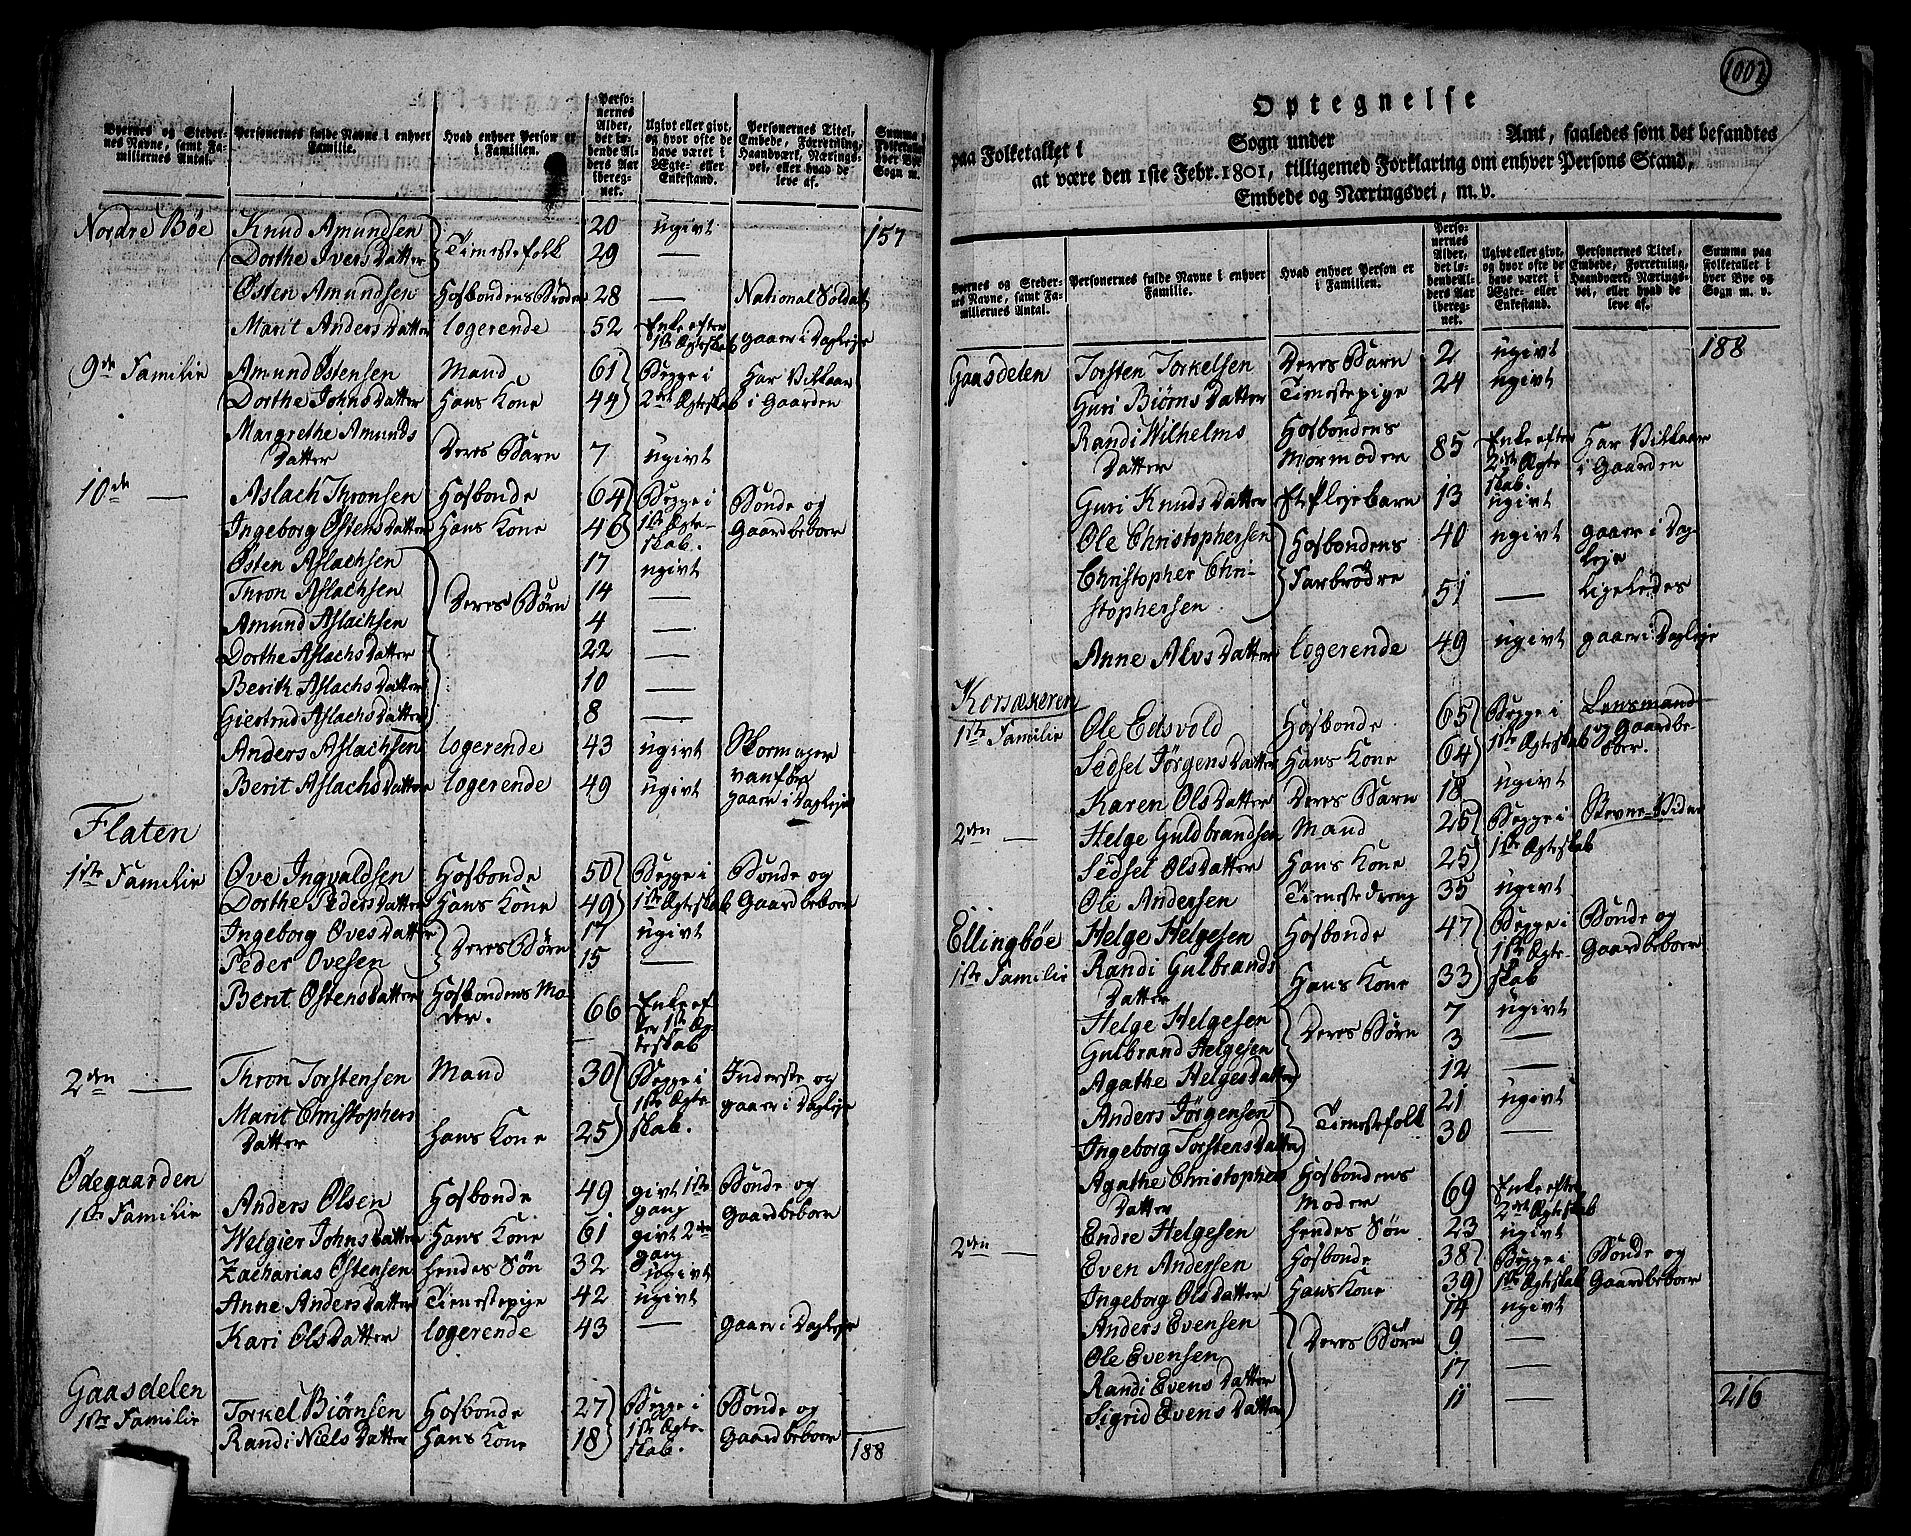 Byernes og Stedernes Navne, samt Familiernes Antal. | Personernes fulde Navne i enhver Familie. | Hvad enhver Person er i Familien. | Personernes Alder, det løbende Alders Aar iberegnet. | Ugivt eller givt, og hvor ofte de have været i Ægte- eller Enkestand. | Personernes Titel, Embede, Forretning, Haandværk, Næringsvei, eller hvad de leve af. | Summa paa Folketallet i hver Bye og Sogn m. v.
Nordre Bøe | Knud Amundsen | Tienestefolk | 20 | ugivt | | 157
Dorthe Ivers Datter | 29 | —
Østen Amundsen | Hosbondens Broder | 28 | — | National Soldat
Marit Anders Datter | logerende | 52 | Enke efter 1ste Ægteskab | gaaer i Dagleje
9de Familie | Amund Østensen | Mand | 61 | Begge i | Har Vilkaar
Dorthe Johns Datter | Hans Kone | 44 | 2det Ægteskab | i Gaarden
Margrethe Amunds
Datter | Deres Barn | 7 | ugivt
10de — | Aslach Thronsen | Hosbonde | 64 | Begge i | Bonde og
Ingeborg Østens Datter | Hans Kone | 46 | 1ste Ægteskab. | Gaardbeboer
Østen Aslachsen | Deres Børn | 17 | ugivt
Thron Aslachsen | 14 | —
Amund Aslachsen | 4 | —
Dorthe Aslachs Datter | 22 | —
Berith Aslachs Datter | 10 | —
Giertrud Aslachs Datter | 8 | —
Anders Aslachsen | logerende | 43 | ugivt | Skomager vanfør
Berit Aslachs Datter | logerende | 49 | ugivt | gaaer i Dagleje
Flaten
1ste Familie | Ove Ingvaldsen | Hosbonde | 50 | Begge i | Bonde og
Dorthe Peders Datter | Hans Kone | 49 | 1ste Ægteskab | Gaardbeboer
Ingeborg Oves Datter | Deres Børn | 17 | ugivt
Peder Ovesen | 15 | —
Berit Østens Datter | Hosbondens Moder. | 66 | Enke efter 1ste Ægteskab
2den — | Thron Torstensen | Mand | 30 | Begge i | Inderste og
Marit Christophers | 1ste Ægte- | gaaer i Dagleje
Datter | Hans Kone | 25 | skab.
Ødegaarden
1ste Familie | Anders Olsen | Hosbonde | 49 | givt 1ste gang | Bonde og Gaardbeboer
Welgier Johns Datter | Hans Kone | 61 | givt 2den gang
Zacharias Østensen | hendes Søn | 32 | ugivt
Anne Anders Datter | Tienestepige | 42 | ugivt
Kari Ols Datter | logerende | 43 | — | gaaer i Dagleje
Gaasdelen
1ste Familie | Torkel Biørnsen | Hosbonde | 27 | Begge i | Bonde og
Randi Niels Datter | Hans Kone | 18 | 1ste Ægteskab. | Gaardbeboer | 188
1002
Optegnelse
paa Folketallet i Sogn under Amt, saaledes som det befandtes
at være den 1ste Febr. 1801, tilligemed Forklaring om enhver Persons Stand,
Embede og Næringsvei, m. v.
Byernes og Stedernes Navne, samt Familiernes Antal. | Personernes fulde Navne i enhver Familie. | Hvad enhver Person er i Familien. | Personernes Alder, det løbende Alders Aar iberegnet. | Ugivt eller givt, og hvor ofte de have været i Ægte- eller Enkestand. | Personernes Titel, Embede, Forretning, Haandværk, Næringsvei, eller hvad de leve af. | Summa paa Folketallet i hver Bye og Sogn m. v.
Gaasdelen | Torsten Torkelsen | Deres Barn | 2 | ugivt | | 188
Guri Biørns Datter | Tienestepige | 24 | ugivt
Randi Wilhelms | Hosbondens | Enke efter | Har Vilkaar
Datter | Mormoder | 85 | 2det Ægteskab. | i Gaarden
Guri Knuds Datter | Et Plejebarn | 13 | ugivt
Ole Christophersen | Hosbondens | 40 | ugivt | gaaer i Dagleje
Christopher Chri- | Farbrødre | 51 | — | Ligeledes
stophersen
Anne Alvs Datter | logerende | 49 | ugivt | gaaer i Dagleje
Korsækeren
1ste Familie | Ole Edsvold | Hosbonde | 65 | Begge i | Lensmand
Sedsel Jørgens Datter | Hans Kone | 64 | 1ste Ægteskab | og Gaardbeboer.
Karen Ols Datter | Deres Barn | 18 | ugivt
2den — | Helge Guldbrandsen | Mand | 25 | Begge i | Stevne-Vidne
Sedsel Olsdatter | Hans Kone | 25 | 1ste Ægteskab
Ole Andersen | Tienestedreng | 35 | ugivt
Ellingbøe | Helge Helgesen | Hosbonde | 47 | Begge i | Bonde og
1ste Familie | Randi Gulbrands | 1ste Ægte- | Gaardbeboer
Datter | Hans Kone | 33 | skab
Helge Helgesen | Deres Børn | 7 | ugivt
Gulbrand Helgesen | 3 | —
Agathe Helges Datter | 12 | —
Anders Jørgensen | Tienestefolk | 21 | ugivt
Ingeborg Torstens Datter | 30 | —
Agathe Christophers | Hosbondens
Datter | Moder | 69 | Enke efter 2det Ægteskab
Endre Helgesen | hendes Søn | 23 | ugivt
2den — | Even Andersen | Hosbonde | 38 | Begge i | Bonde og
Ingeborg Ols Datter | Hans Kone | 39 | 1ste Ægteskab | Gaardbeboer
Anders Evensen | Deres Børn | 14 | ugivt
Ole Evensen | 9 | —
Randi Evens Datter | 17 | —
Sigrid Evens Datter | 11 | — | | 216